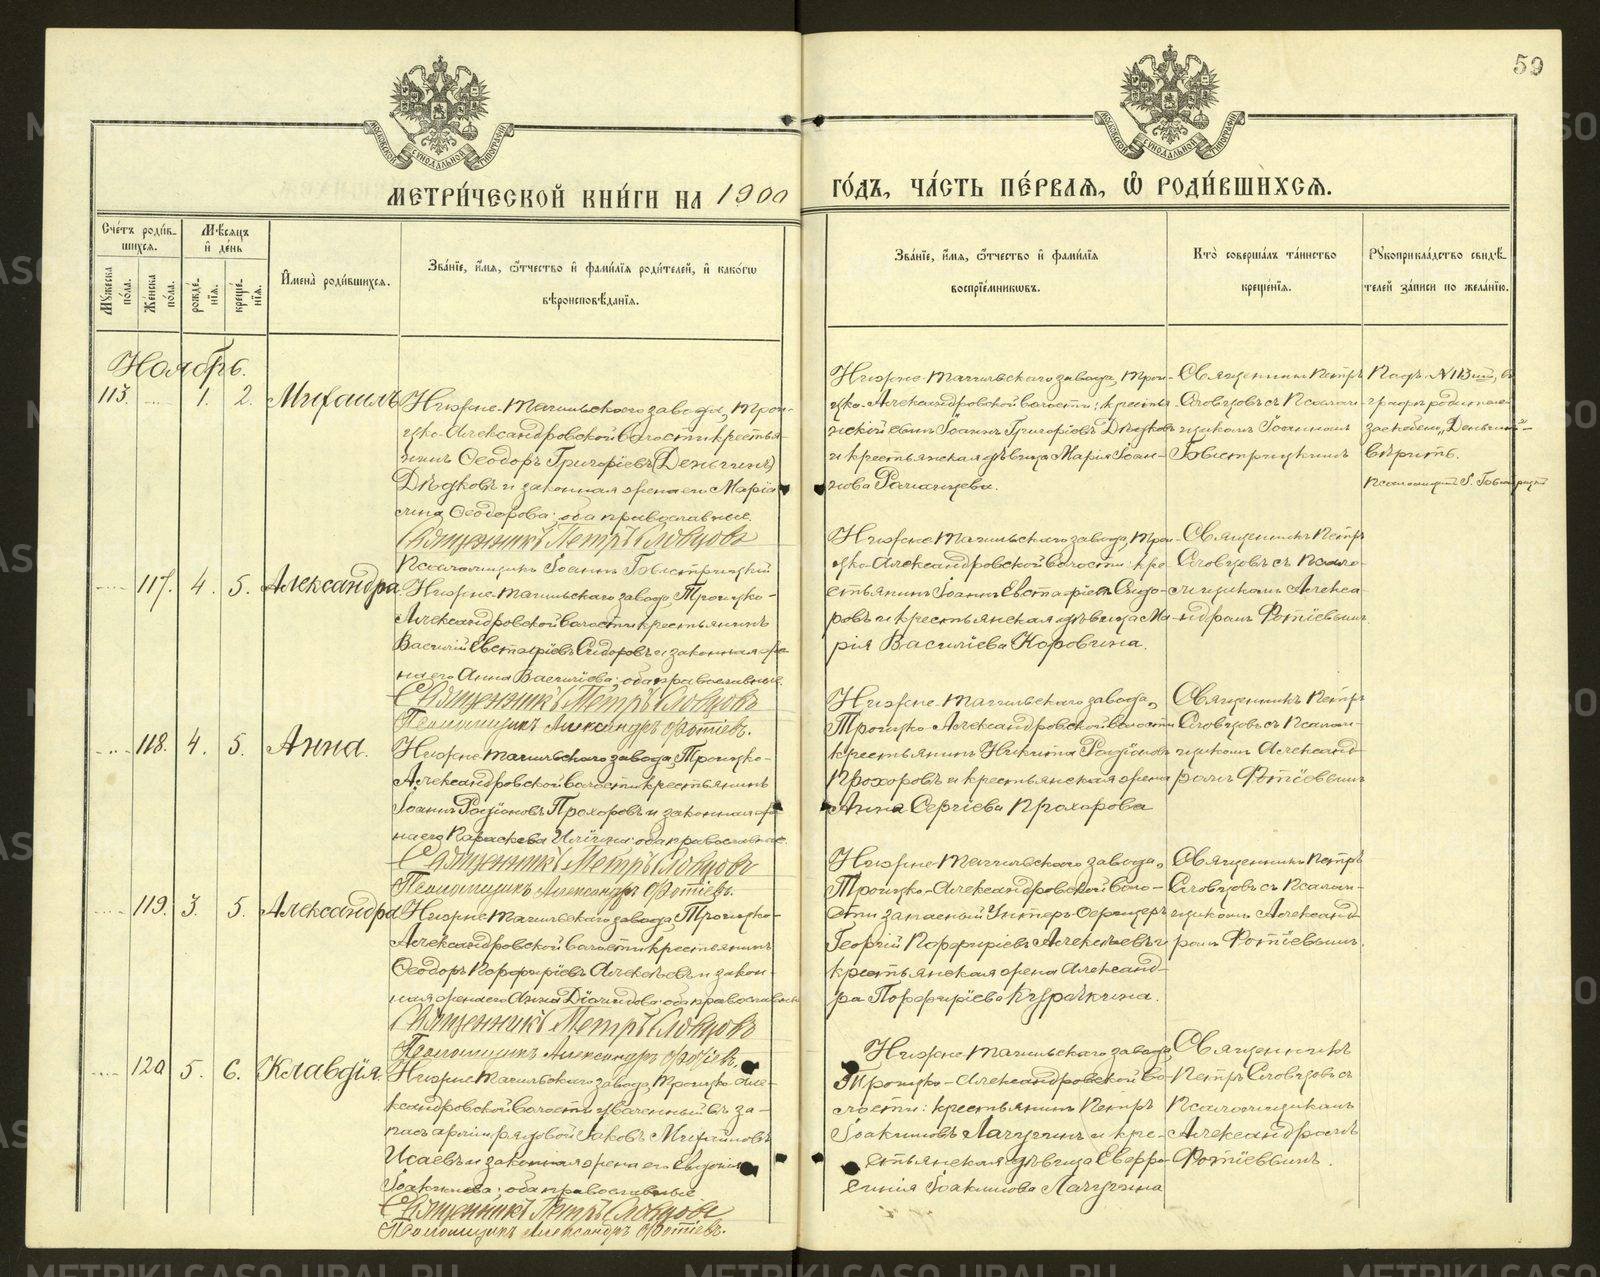 59
МЕТРИ́ЧЕСКОЙ КНИ́ГИ НА 1900 ГО́ДЪ, ЧА́СТЬ ПЕ́РВАѦ, Ѽ РОДИ́ВШИХСѦ.
МОСКОВСКОЙ СѴНОДАЛЬНОЙ ТИПОГРАФІИ
МОСКОВСКОЙ СѴНОДАЛЬНОЙ ТИПОГРАФІИ
Сче́тъ роди́в-
шихсѧ.
Мꙋжеска по́ла.
Же́нска по́ла.
Мѣ́сѧцъ и҆ де́нь
рожде́-
нїѧ.
креще́-
нїѧ.
И҆мена̀ роди́вшихсѧ.
Зва́нїе, и҆́мѧ, ѻ҆́тчество и҆ фами́лїѧ роди́телей, и҆ како́гѡ
вѣроисповѣ́данїѧ.
Зва́нїе, и҆́мѧ, ѻ҆́тчество и҆ фами́лїѧ
воспрїе́мникѡвъ.
Кто̀ соверша́лъ та́инство
креще́нїѧ.
Рꙋкоприкла́дство свидѣ́-
телей за́писи по жела́нїю.
Ноябрь.
113. 1. 2. Михаилъ
Нижне-Тагильскаго завода, Трои-
цко-Александровской волости крестья-
нинъ Ѳеодоръ Григоріевъ (Деньгинъ)
Дѣдковъ и законная жена его Марія
Ѳеодорова; оба православные.
Священникъ Петръ Словцовъ
Псаломщикъ Іоаннъ Быстрицкій
Нижне-Тагильскаго завода, Трои-
цко-Александровской волости: крестья-
нскій сынъ Іоаннъ Григоріевъ Дѣдковъ
и крестьянская дѣвица Марія Іоан-
нова
Священникъ Петръ
Словцовъ съ Псалом-
щикомъ Іоанномъ
Быстрицкимъ
Подъ №113мъ, въ
графѣ родители
"Деньгинъ"
вѣрить.
Псаломщикъ І. Быстрицкій
117. 4. 5. Александра.
Нижне-Тагильскаго завода, Троицко-
Александровской волости крестьянинъ
Василій Евстафіевъ Сидоровъ и законная же-
на его Анна Васильева; оба православные.
Священникъ Петръ Словцовъ
Псаломщикъ Александръ Фотіевъ.
Нижне-Тагильскаго завода, Трои-
цко-Александровской волости: кре-
стьянинъ Іоаннъ Евстафіевъ Сидо-
ровъ и крестьянская дѣвица Ма-
рія Василіева Коровина.
Священникъ Петръ
Словцовъ съ Псало-
мщикомъ Алекса-
ндромъ Фотіевымъ
118. 4. 5. Анна.
Нижне-Тагильскаго завода, Троицко-
Александровской волости крестьянинъ
Іоаннъ Родіоновъ Прохоровъ и законная же-
на его Параскева Иліина; оба православные.
Священникъ Петръ Словцовъ
Псаломщикъ Александръ Фотіевъ.
Нижне-Тагильскаго завода,
Троицко-Александровской волости
крестьянинъ Никита Родіоновъ
Прохоровъ и крестьянская жена
Анна Сергіева Прохорова
Священникъ Петръ
Словцовъ съ Псалом-
щикомъ Александ-
ромъ Фотіевымъ
119. 3. 5. Александра
Нижне-Тагильскаго завода, Троицко-
Александровской волости крестьянинъ
Ѳеодоръ Порфиріевъ Алексѣевъ и закон-
ная жена его Анна; оба православные
Священникъ Петръ Словцовъ
Псаломщикъ Александръ Фотіевъ.
Нижне-Тагильскаго завода,
Троицко-Александровской воло-
сти запасный Унтеръ-Офицеръ
Георгій Порфиріевъ Алексѣевъ и
крестьянская жена Александ-
ра Порфиріева
Священникъ Петръ
Словцовъ съ Псалом-
щикомъ Александ-
ромъ Фотіевымъ.
120 5. 6. Клавдія.
Нижне-Тагильскаго завода, Троицко-Але-
ксандровской волости уволенный въ за-
пасъ арміи рядовой Іаковъ Михайловъ
Исаевъ и законная жена его Евдокія
Іоакимова; оба православные
Священникъ Петръ Словцовъ
Псаломщикъ Александръ Фотіевъ.
Нижне-Тагильскаго завода,
Троицко-Александровской во-
лости: крестьянинъ Петръ
Іоакимовъ Лапугинъ и кре-
стьянская дѣвица Евфро-
синія Іоакимова
Священникъ
Петръ Словцовъ съ
Псаломщикомъ
Александромъ
Фотіевымъ.
METRIKI.CASO-URAL.RU